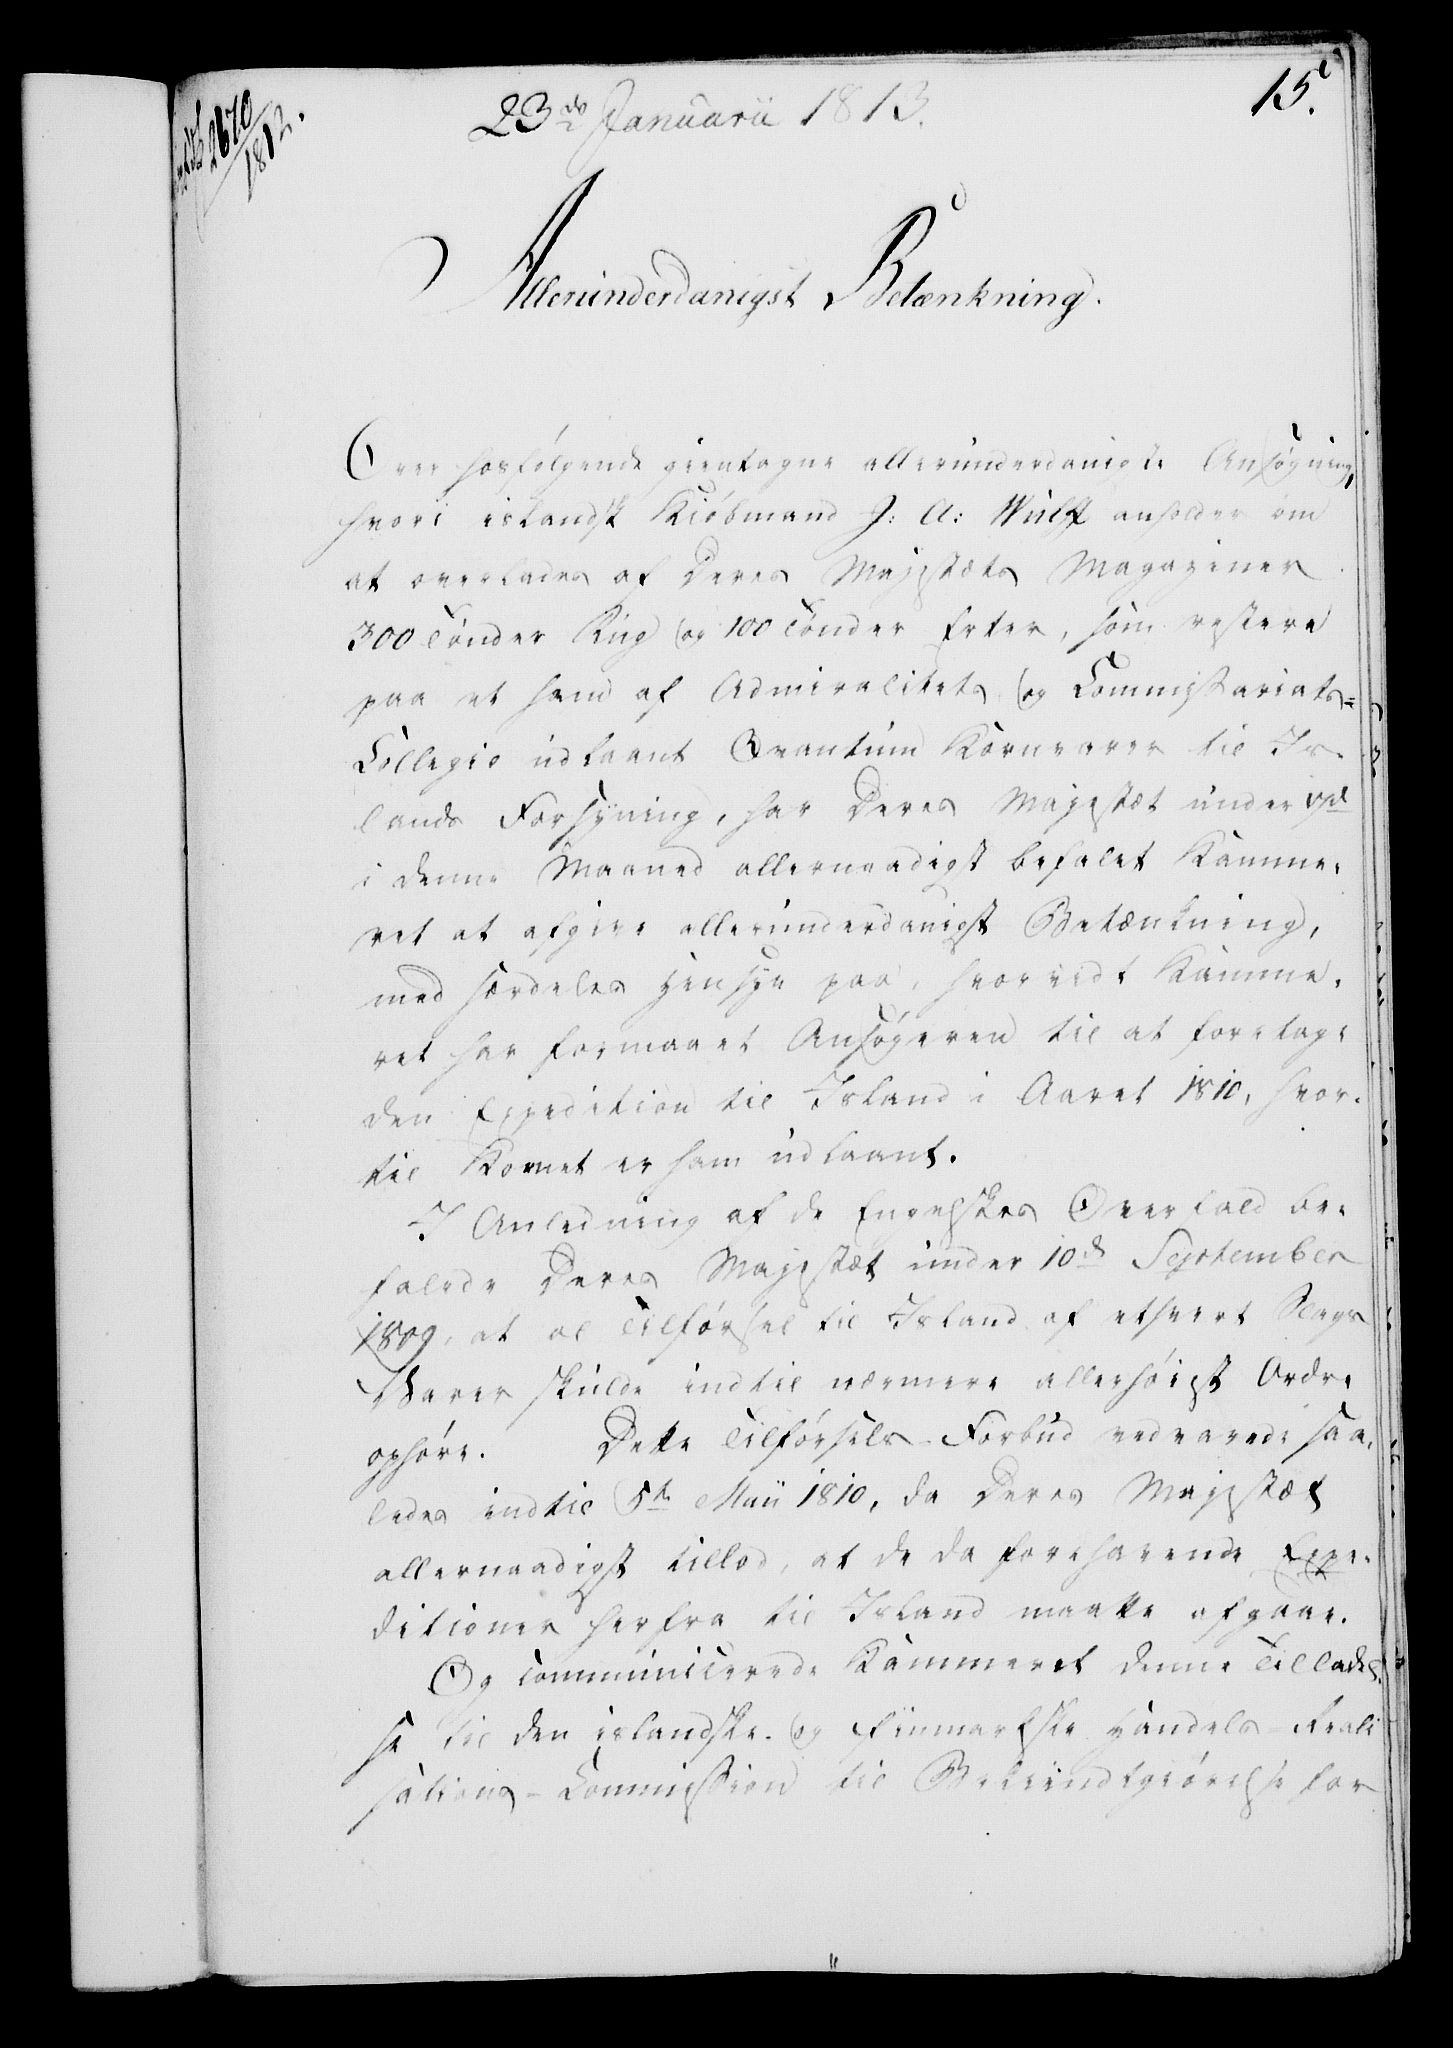 2670
1812.
23de Januarii 1813.
15.
Allerunderdanigst Betænkning.
Over hosfølgende gientagne allerunderdanigste Ansøgning,
hvori islandsk Kiöbmand J: A: Wulff anholder om
at overlades af Deres Majestæts Magaziner
300 Tönder Rug og 100 Tönder Erter, som restere
paa et ham af Admiralitets og Commissariats-
Collegie udlaant Qvantum Kornvarer til Is-
lands Forsyning, har Deres Majestæt under
i denne Maaned allernaadigst befalet Kamme-
ret at afgive allerunderdanigst Betænkning,
med særdeles Hensyn paa, hvorvidt Kamme-
ret har formaaet Ansøgeren til at foretage
den Expedition til Island i Aaret 1810, hvor-
til Kornet er ham udlaant.
I Anledning af de Engelskes Overfald be-
falede Deres Majestæt under 10de September
1809, at al Tilførsel til Island af ethvert Slags
Varer skulde indtil nærmere allerhöiest Ordre
ophöre. Dette Tilförsels-Forbud vedvarede saa-
ledes indtil 5te Maii 1810, da Deres Majestæt
allernaadigst tillod, at de da forehavende Expe-
ditioner herfra til Island maatte afgaae.
Og communicerede Kammeret denne Tilladel-
se til den islandske og finmarkske Handels-Reali
sations-Commission til Bekiendtgiörelse for